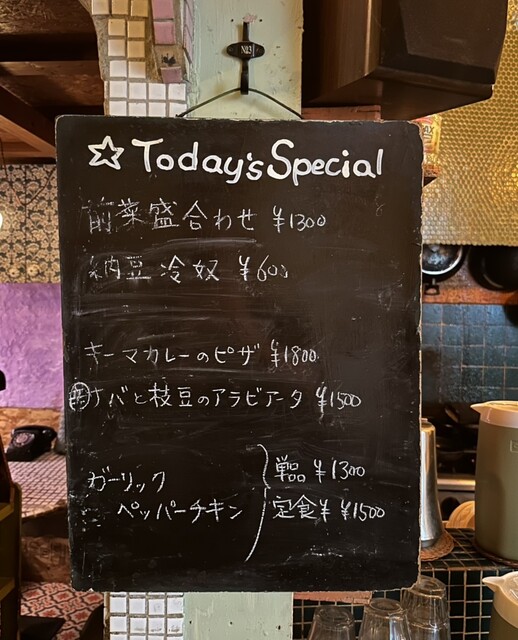 No.3
☆ Today's Special
前菜盛合わせ ¥1300
納豆冷奴 ¥600
キーマカレーのピザ ¥1800
サバと枝豆のアラビアータ ¥1500
ガーリック
ペッパーチキン
単品 ¥1300
定食¥ ¥1500